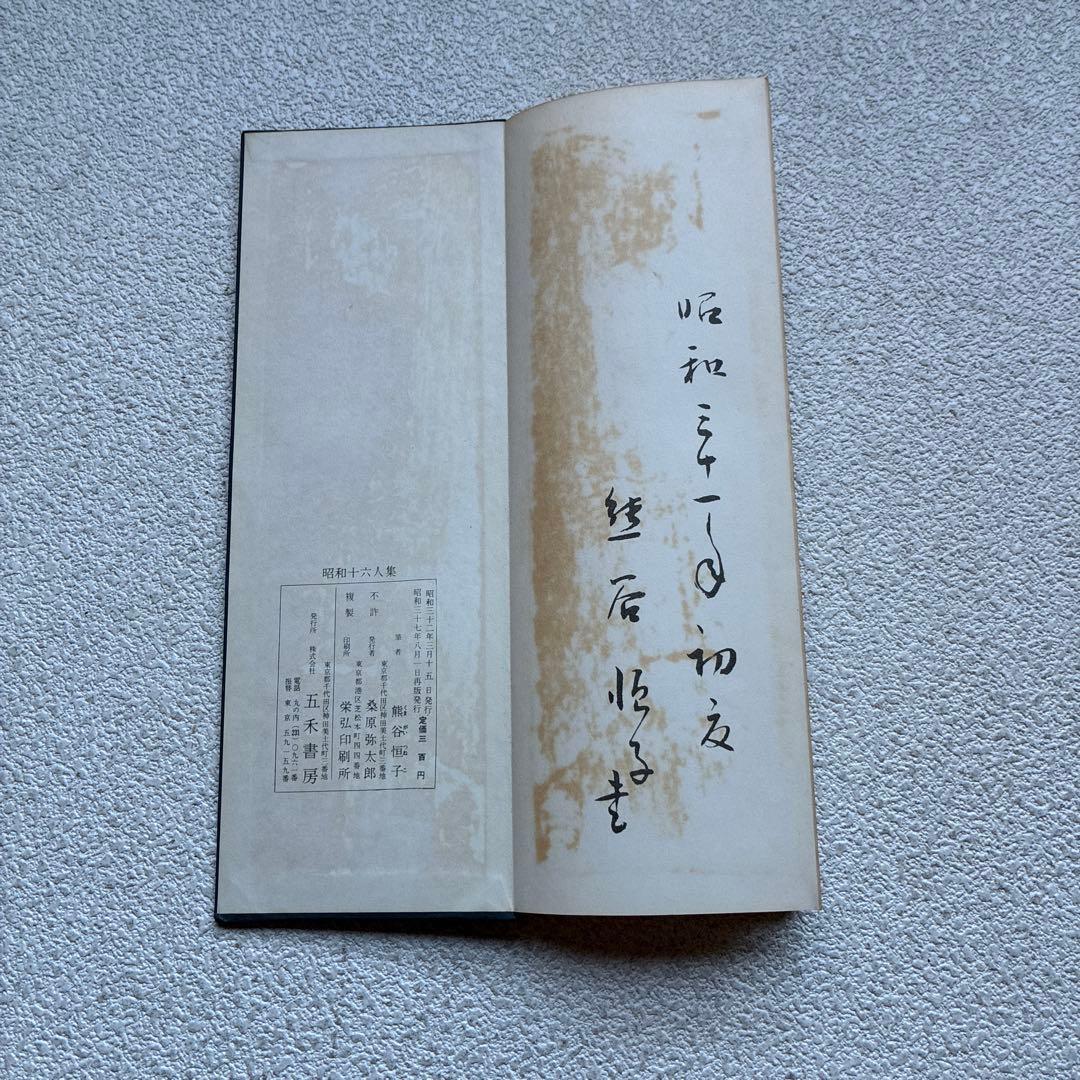 昭和三十一年初夏
熊谷恒子書
昭和十六人集
昭和三十二年三月十五日発行
昭和三十七年八月一日再版発行
定価三百円
不許
複製
筆者
東京都千代田区神田美土代町三番地
熊谷恒子
発行者
東京都港区芝松本町四四番地
桑原弥太郎
印刷所
栄弘印刷所
東京都千代田区神田美土代町三番地
発行所
株式会社
五禾書房
電話 丸の内(231)〇九六一番
振替 東京五九一五九番